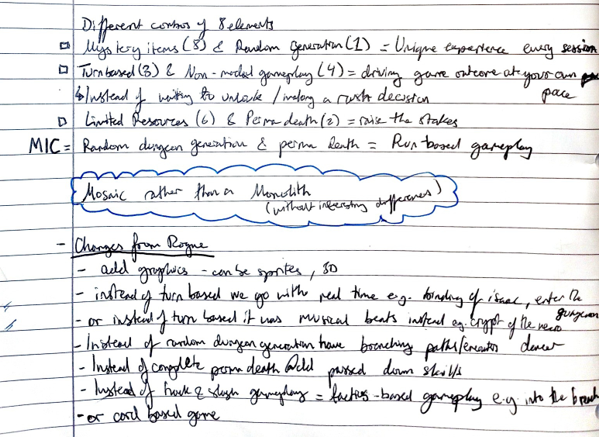 Different combos of 8 elements
Mystery items (8) & Random generation (1) = Unique experience every session
Turn based (3) & Non-modal gameplay (4) = driving game outcome at your own pace
Instead of waiting to unlock / making a rash decision
Limited Resources (6) & Perma death (2) = raise the stakes
MIC = Random dungeon generation & perma death = Run based gameplay
Mosaic rather than a Monolith
(without interesting differences)
- Changes from Rogue
- add graphics - can be sprites, 3D
- instead of turn based we go with real time e.g. binding of isaac, enter the gungeon
- or instead of turn based it was musical beats instead eg. crypt of the necro dancer
- Instead of random dungeon generation have branching paths/encounters
- Instead of complete perma death add passed down skills
- Instead of hack & slash gameplay = tactics-based gameplay e.g. into the breach
- or card based game